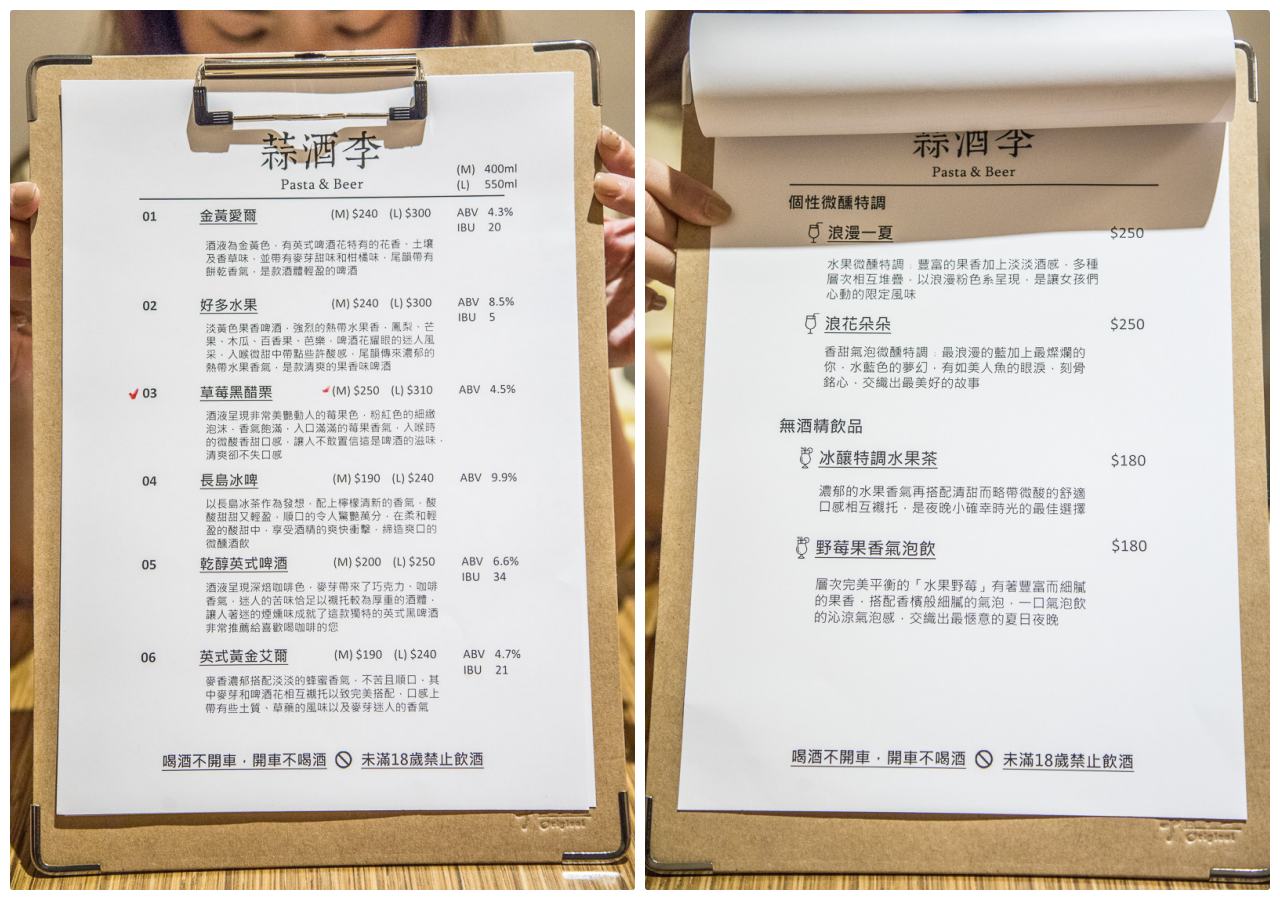 蒜酒李
Pasta & Beer
(M) 400ml
(L) 550ml
01 金黃愛爾 (M) $240 (L) $300 ABV 4.3%
IBU 20
酒液為金黃色，有英式啤酒花特有的花香、土壤
及香草味，並帶有麥芽甜味和柑橘味，尾韻帶有
餅乾香氣，是款酒體輕盈的啤酒
02 好多水果 (M) $240 (L) $300 ABV 8.5%
IBU 5
淡黃色果香啤酒，強烈的熱帶水果香，鳳梨、芒
果、木瓜、百香果、芭樂，啤酒花耀眼的迷人風
采，入喉微甜中帶點些許酸感，尾韻傳來濃郁的
熱帶水果香氣，是款清爽的果香味啤酒
03 草莓黑醋栗 (M) $250 (L) $310 ABV 4.5%
酒液呈現非常美艷動人的莓果色，粉紅色的細緻
泡沫，香氣飽滿，入口滿滿的莓果香氣，入喉時
的微酸香甜口感，讓人不敢置信這是啤酒的滋味，
清爽卻不失口感
04 長島冰啤 (M) $190 (L) $240 ABV 9.9%
以長島冰茶作為發想，配上檸檬清新的香氣，酸
酸甜甜又輕盈，順口的令人驚艷萬分，在柔和輕
盈的酸甜中，享受酒精的爽快衝擊，締造爽口的
微醺酒飲
05 乾醇英式啤酒 (M) $200 (L) $250 ABV 6.6%
IBU 34
酒液呈現深焙咖啡色，麥芽帶來了巧克力、咖啡
香氣，迷人的苦味恰足以襯托較為厚重的酒體，
讓人著迷的煙燻味成就了這款獨特的英式黑啤酒
非常推薦給喜歡喝咖啡的您
06 英式黃金艾爾 (M) $190 (L) $240 ABV 4.7%
IBU 21
麥香濃郁搭配淡淡的蜂蜜香氣，不苦且順口，其
中麥芽和啤酒花相互襯托以致完美搭配，口感上
帶有些土質、草藥的風味以及麥芽迷人的香氣
喝酒不開車，開車不喝酒 未滿18歲禁止飲酒
Original
蒜酒李
Pasta & Beer
個性微醺特調
浪漫一夏 $250
水果微醺特調﹔豐富的果香加上淡淡酒感，多種
層次相互堆疊，以浪漫粉色系呈現，是讓女孩們
心動的限定風味
浪花朵朵 $250
香甜氣泡微醺特調﹔最浪漫的藍加上最燦爛的
你，水藍色的夢幻，有如美人魚的眼淚，刻骨
銘心，交織出最美好的故事
無酒精飲品
冰釀特調水果茶 $180
濃郁的水果香氣再搭配清甜而略帶微酸的舒適
口感相互襯托，是夜晚小確幸時光的最佳選擇
野莓果香氣泡飲 $180
層次完美平衡的「水果野莓」有著豐富而細膩
的果香，搭配香檳般細膩的氣泡，一口氣泡飲
的沁涼氣泡感，交織出最愜意的夏日夜晚
喝酒不開車，開車不喝酒 未滿18歲禁止飲酒
Original